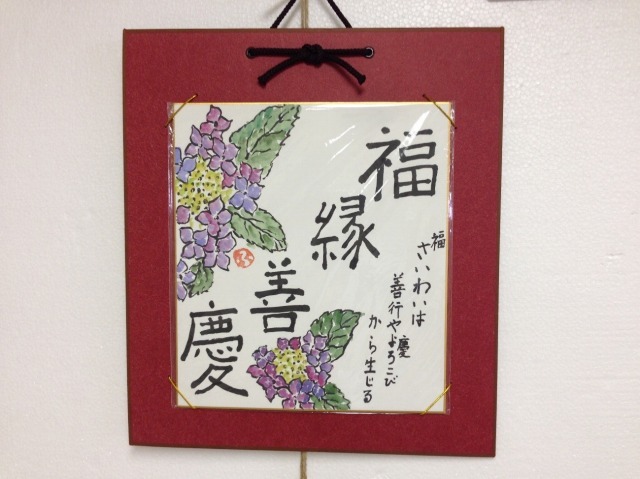 福縁善慶
福
さいわいは
善行や慶
よろこび
から生じる
ふ